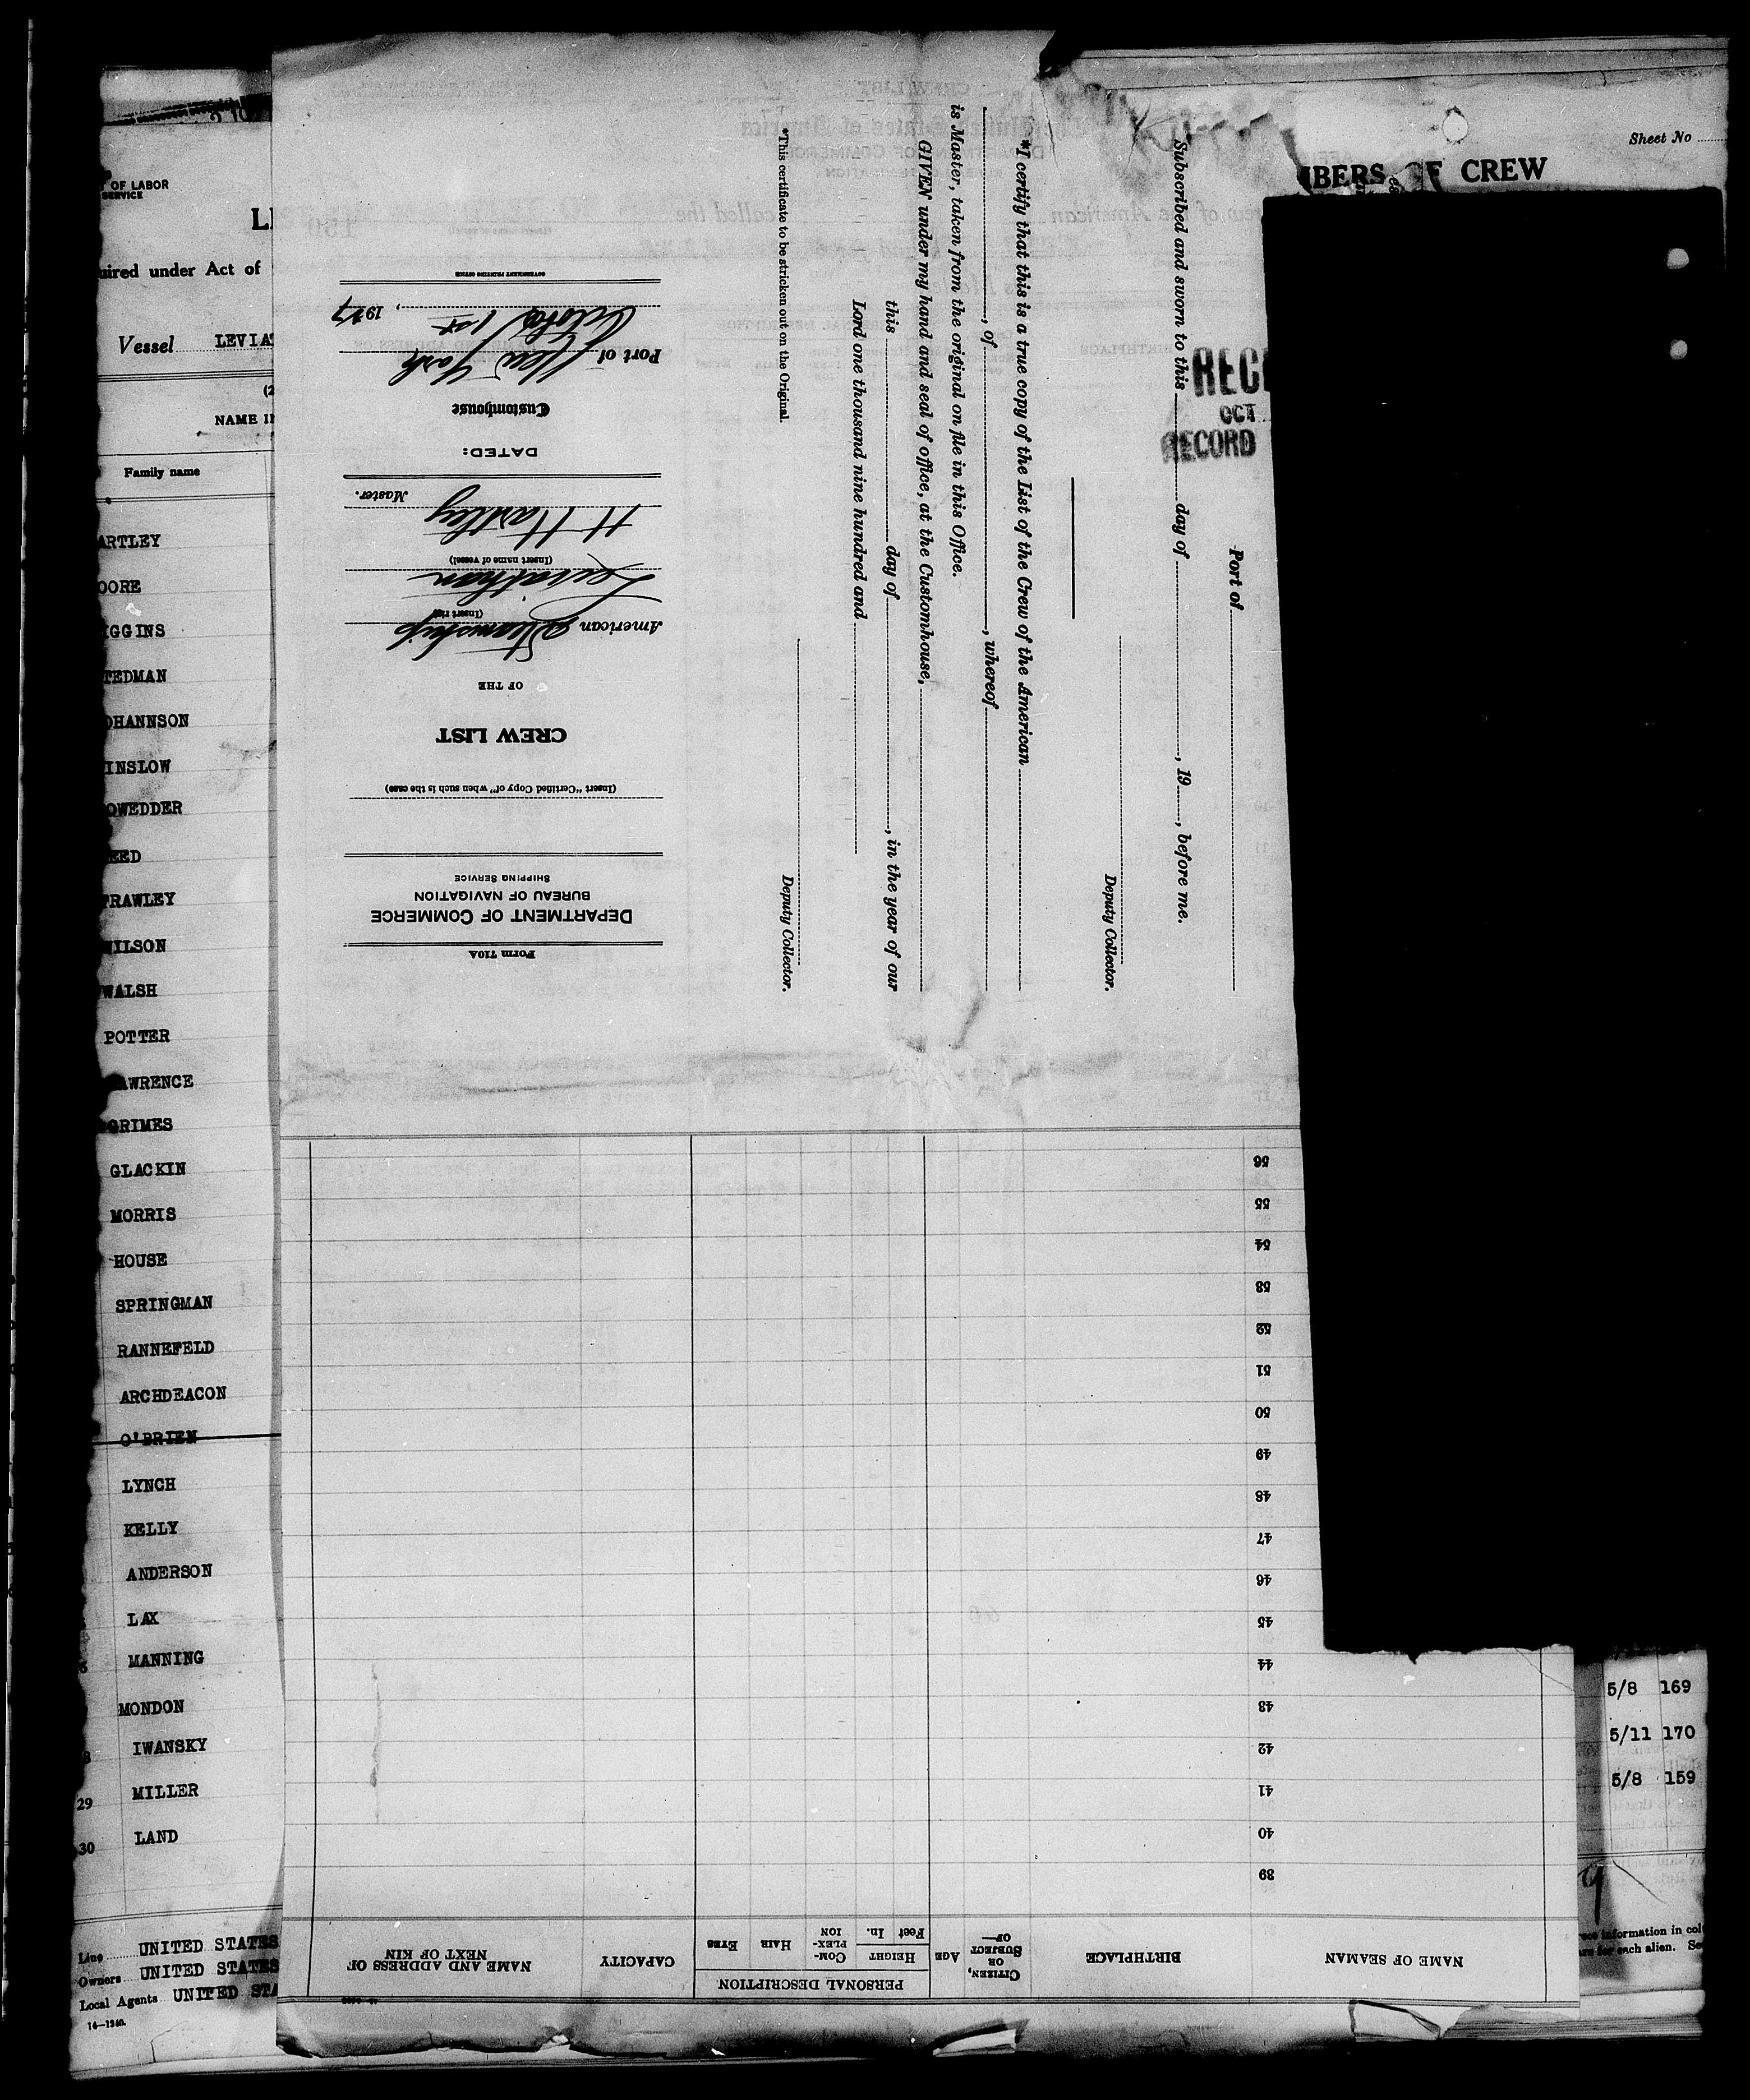 OF LABOR
SERVICE
uired under Act of
Vessel LEVIA
NAME IN
Family name
ARTLEY
OORE
IGGINS
TEDMAN
OHANNSON
INSLOW
OWEDDER
EED
RAWLEY
WILSON
WALSH
POTTER
AWRENCE
GRIMES
GLACKIN
MORRIS
HOUSE
SPRINGMAN
RANNEFELD
ARCHDEACON
O'BRIEN
LYNCH
KELLY
ANDERSON
LAX
MANNING
MONDON
IWANSKY
29 MILLER
30 LAND
Line UNITED STATES
Owners UNITED STATES
Local Agents UNITED STA
14—1240.
Form 710A
DEPARTMENT OF COMMERCE
BUREAU OF NAVIGATION
SHIPPING SERVICE
(Insert "Certified Copy of" when such is the case)
CREW LIST
OF THE
American Steamship
(Insert rig)
Leviathan
(Insert name of vessel)
H Hartley
Master.
DATED:
Customhouse
Port of New York
October 1st, 1927
GOVERNMENT PRINTING OFFICE
Port of
Subscribed and sworn to this day of , 19 , before me.
Deputy Collector.
*I certify that this is a true copy of the List of the Crew of the American
, of , whereof
is Master, taken from the original on file in this Office.
GIVEN under my hand and seal of office, at the Customhouse,
this day of , in the year of our
Lord one thousand nine hundred and
Deputy Collector.
*This certificate to be stricken out on the Original.
Sheet No
MBERS OF CREW
REC
OCT
RECORD
NAME OF SEAMAN
BIRTHPLACE
CITIZEN, OR SUBJECT OF—
AGE
PERSONAL DESCRIPTION
HEIGHT
Feet In.
COM-PLEX-ION
HAIR
EYES
CAPACITY
NAME AND ADDRESS OF NEXT OF KIN
39
40
41
42
43
44
45
46
47
48
49
50
51
52
53
54
55
56
5/8 169
5/11 170
5/8 159
information in col
for each alien.